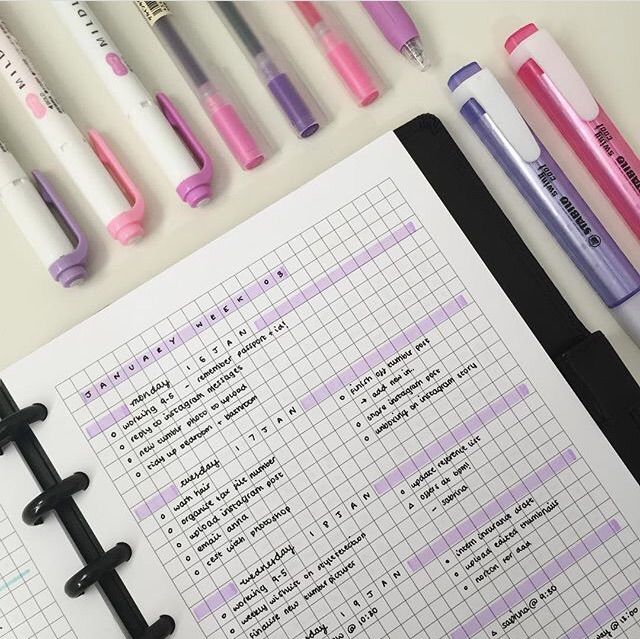 MILDL
MILDL
STABILO
swing cool
STABILO
swing cool
JANUARY WEEK 03
monday 16 JAN
o working 9-5 - remember passport + id!
o reply to instagram messages
o new tumblr photo to upload
o tidy up bedroom + bathroom
o finish off tumblr post
→ add now in.
o share instagram post
o unboxing on instagram story
tuesday 17 JAN
o wash hair
o organise tax file number
o upload instagram post
o email anna
o rest with photoshop
o update reference list
△ offers at 6pm!
- sabrina
wednesday 18 JAN
o working 9-5
o weekly wishlist on style selection
o finalise new tumblr pictures
o intern insurance draft
o upload edited thumbnails
o notion for
19 JAN
@ 10:30
△ sabrina @ 9:30